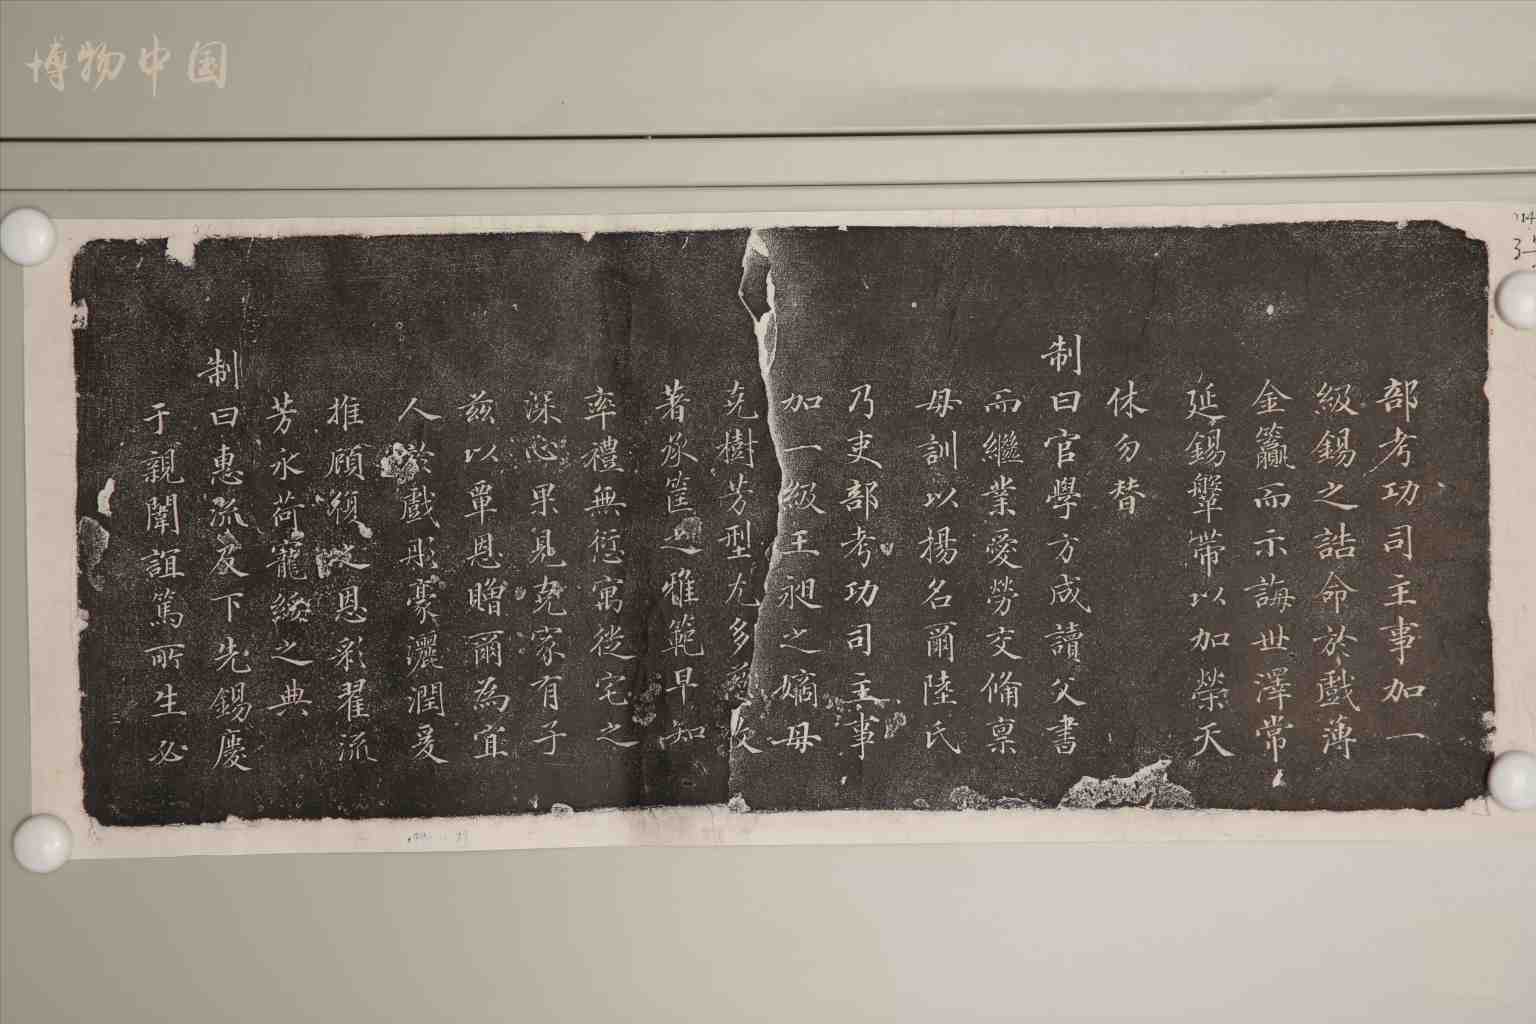 博物中国
部考功司主事加一
級錫之誥命於戲薄
金籯而示誨世澤常
延錫鞶帶以加榮天
休勿替
制曰官學方成讀父書
而繼業愛勞交俻稟
母訓以揚名爾陸氏
乃吏部考功司主事
加一級王昶之嫡母
克樹芳型尤多慈教
著承筐之雅範早知
率禮無愆寓徙宅之
深心果見克家有子
茲以覃恩贈爾為宜
人於戲彤毫灑潤爰
推顧復之恩彩翟流
芳永荷寵綏之典
制曰惠流及下先錫慶
于親闈誼篤所生必